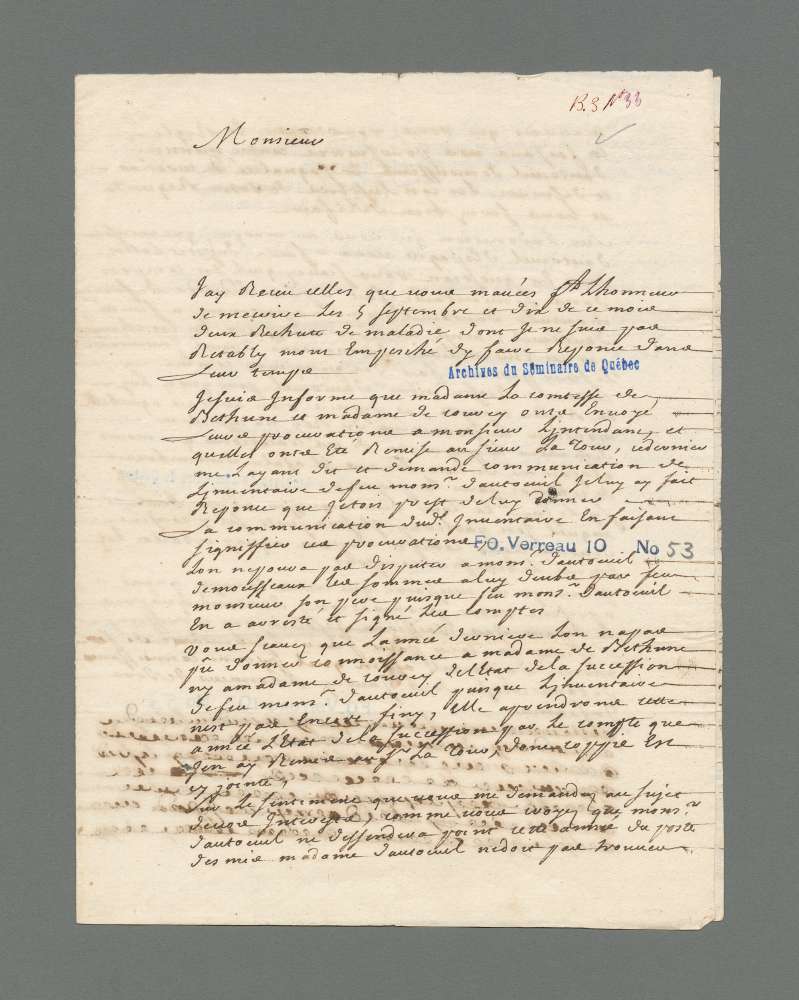 B.3 N° 33
Monsieur
Jay Receu celles que vous mavées ft Lhonneur
de mecrire Les 5 septembre et dix de ce mois
deux Rechute de maladie dont Je ne suis pas
Retably mont Empesché dy faire Reponce dans
Leur temps
Archives du Séminaire de Québec
Jesuis Informe que madame La comtesse de
Bethune et madame de couvey onts Envoyé
Leurs procurations a monsieur Lintendant, et
quelles onts Eté Remise au sieur La Tour, cedernier
me Layant dit et demande communication de
Linventaire defeu monsr. dauteuil Jeluy ay fait
Reponce que Jetois prest deluy donner
La communication dud. Inventaire En faisant
signiffier ces procurations
FO. Verreau 10 No 53
Lon nepoura pas disputer a monsr. dauteuil
demousseaux les sommes aluy deubs par feu
monsieur son pere puisque feu monsr. dauteuil
En a arresté et signé Les comptes
vous scavez que Lanneé derniere Lon napas
pû donner connoissance a madame de Bethune
ny amadame de couvey deLEtat dela succession
defeu monsr. dauteuil puisque Linventaire
nest pas Encore finy, Elle aprendrons cette
année LEtat dela succession par Le compte que
Jen ay Remis au sr. La Tour, dont coppie Est
cy jointe,
sur Le sentiment que vous me demandez au sujet
deuos Interests, comme vous voyez que monsr.
dauteuil ne dessendera point cette année du poste
des mis madame dauteuil nedoit pas trouver